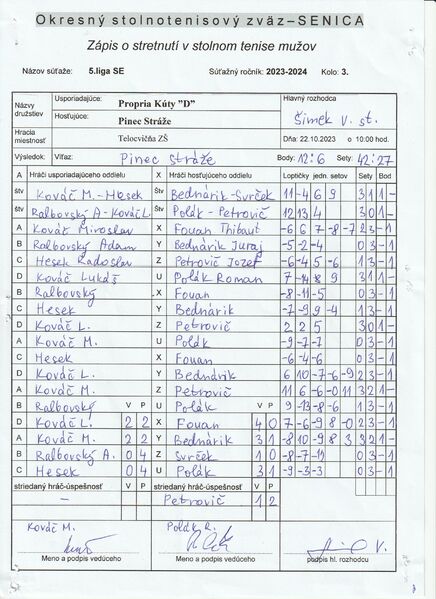 Okresný stolnotenisový zväz–SENICA
Zápis o stretnutí v stolnom tenise mužov
Názov súťaže: 5.liga SE Súťažný ročník: 2023-2024 Kolo: 3.
Názvy družstiev Usporiadajúce: Propria Kúty "D" Hlavný rozhodca
Hosťujúce: Pinec Stráže Šimek V. st.
Hracia miestnosť Telocvičňa ZŠ Dňa: 22.10.2023 o 10:00 hod.
Výsledok: Víťaz: Pinec Stráže Body: 12:6 Sety: 42:27
A Hráči usporiadajúceho oddielu X Hráči hosťujúceho oddielu Loptičky jedn. setov Sety Bod
štv Kováč M.-Hesek štv Bednárik-Svrček 11 -4 6 9 3 1 1 -
štv Ralbovský A-Kováč L štv Polák-Petrovič 12 13 4 3 0 1 -
A Kovák Miroslav X Fouan Thibaut -6 6 7 -8 -7 2 3 - 1
B Ralbovský Adam Y Bednárik Juraj -5 -2 -4 0 3 - 1
C Hesek Radoslav Z Petrovič Jozef -6 -4 5 -6 1 3 - 1
D Kováč Lukáš U Polák Roman 7 -14 8 9 3 1 1 -
B Ralbovský X Fouan -8 -11 -5 0 3 - 1
C Hesek Y Bednárik -7 -9 9 -4 1 3 - 1
D Kováč L. Z Petrovič 2 2 5 3 0 1 -
A Kováč M. U Polák -9 -7 -7 0 3 - 1
C Hesek X Fouan -6 -4 -6 0 3 - 1
D Kováč L. Y Bednárik 6 10 -7 -6 -9 2 3 - 1
A Kováč M. Z Petrovič 11 6 -6 -0 11 3 2 1 -
B Ralbovský V P U Polák V P 9 -13 -8 -6 1 3 - 1
D Kováč L. 2 2 X Fouan 4 0 7 -6 -9 8 -0 2 3 - 1
A Kováč M. 2 2 Y Bednárik 3 1 -8 10 -9 8 3 3 2 1 -
B Ralbovský A. 0 4 Z Svrček 1 0 -8 -7 -11 0 3 - 1
C Hesek 0 4 U Polák 3 1 -9 -3 -3 0 3 - 1
striedaný hráč-úspešnosť V P striedaný hráč-úspešnosť V P
- Petrovič 1 2
Kováč M. Polák R.
Meno a podpis vedúceho Meno a podpis vedúceho podpis hl. rozhodcu